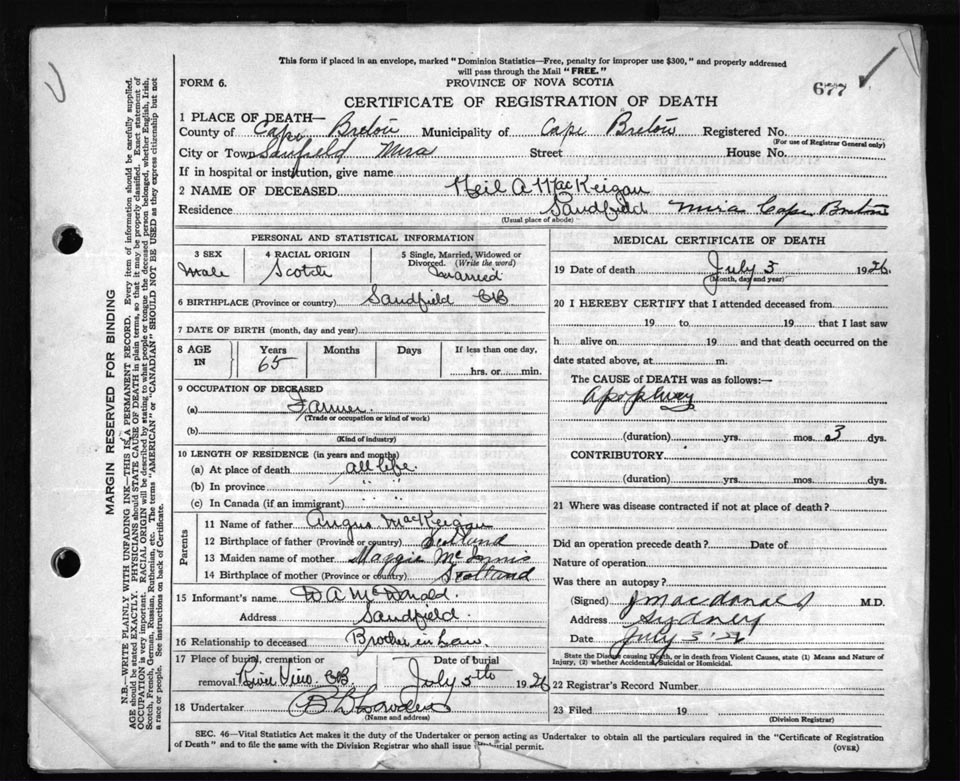 This form if placed in an envelope, marked "Dominion Statistics—Free, penalty for improper use $300," and properly addressed
will pass through the Mail "FREE."
677
FORM 6.
PROVINCE OF NOVA SCOTIA
CERTIFICATE OF REGISTRATION OF DEATH
1 PLACE OF DEATH—
County of Cape Breton Municipality of Cape Breton Registered No.
(For use of Registrar General only)
City or Town Sandfield Mira Street House No.
If in hospital or institution, give name
2 NAME OF DECEASED Neil A MacKeigan
Residence Sandfield Mira Cape Breton
(Usual place of abode)
PERSONAL AND STATISTICAL INFORMATION
3 SEX
Male
4 RACIAL ORIGIN
Scotch
5 Single, Married, Widowed or
Divorced. (Write the word)
Married
6 BIRTHPLACE (Province or country) Sandfield CB
7 DATE OF BIRTH (month, day and year)
8 AGE
IN
Years
65
Months
Days
If less than one day,
hrs. or min.
9 OCCUPATION OF DECEASED
(a) Farmer
(Trade or occupation or kind of work)
(b)
(Kind of industry)
10 LENGTH OF RESIDENCE (in years and months)
(a) At place of death all life
(b) In province " "
(c) In Canada (if an immigrant) " "
Parents
11 Name of father Angus MacKeigan
12 Birthplace of father (Province or country) Scotland
13 Maiden name of mother Maggie McInnis
14 Birthplace of mother (Province or country) Scotland
15 Informant's name D A McDonald
Address Sandfield
16 Relationship to deceased Brother in Law
17 Place of burial, cremation or
removal CB
Date of burial
July 5th 1926
18 Undertaker
(Name and address)
MEDICAL CERTIFICATE OF DEATH
19 Date of death July 3 1926
(Month, day and year)
20 I HEREBY CERTIFY that I attended deceased from
19 to 19 that I last saw
h alive on 19 and that death occurred on the
date stated above, at m.
The CAUSE of DEATH was as follows:—
Apoplexy
(duration) yrs. mos. 3 dys.
CONTRIBUTORY.
(duration) yrs. mos. dys.
21 Where was disease contracted if not at place of death?
Did an operation precede death? Date of
Nature of operation
Was there an autopsy?
(Signed) J Macdonald M.D.
Address Sydney
Date July 3 '26
State the Disease causing Death, or in death from Violent Causes, state (1) Means and Nature of
Injury, (2) whether Accidental, Suicidal or Homicidal.
22 Registrar's Record Number
23 Filed 19
(Division Registrar)
SEC. 46—Vital Statistics Act makes it the duty of the Undertaker or person acting as Undertaker to obtain all the particulars required in the "Certificate of Registration
of Death" and to file the same with the Division Registrar who shall issue burial permit.
(OVER)
MARGIN RESERVED FOR BINDING
N.B.—WRITE PLAINLY WITH UNFADING INK—THIS IS A PERMANENT RECORD. Every item of information should be carefully supplied.
AGE should be stated EXACTLY. PHYSICIANS should STATE CAUSE OF DEATH in plain terms, so that it may be properly classified. Exact statement of
OCCUPATION is very important. RACIAL ORIGIN will be described by stating to what people or tongue the deceased person belonged, whether English, Irish,
Scotch, French, German, Russian, Ruthenian, etc. The terms "AMERICAN" or "CANADIAN" SHOULD NOT BE USED as they express citizenship but not
a race or people. See instructions on back of Certificate.